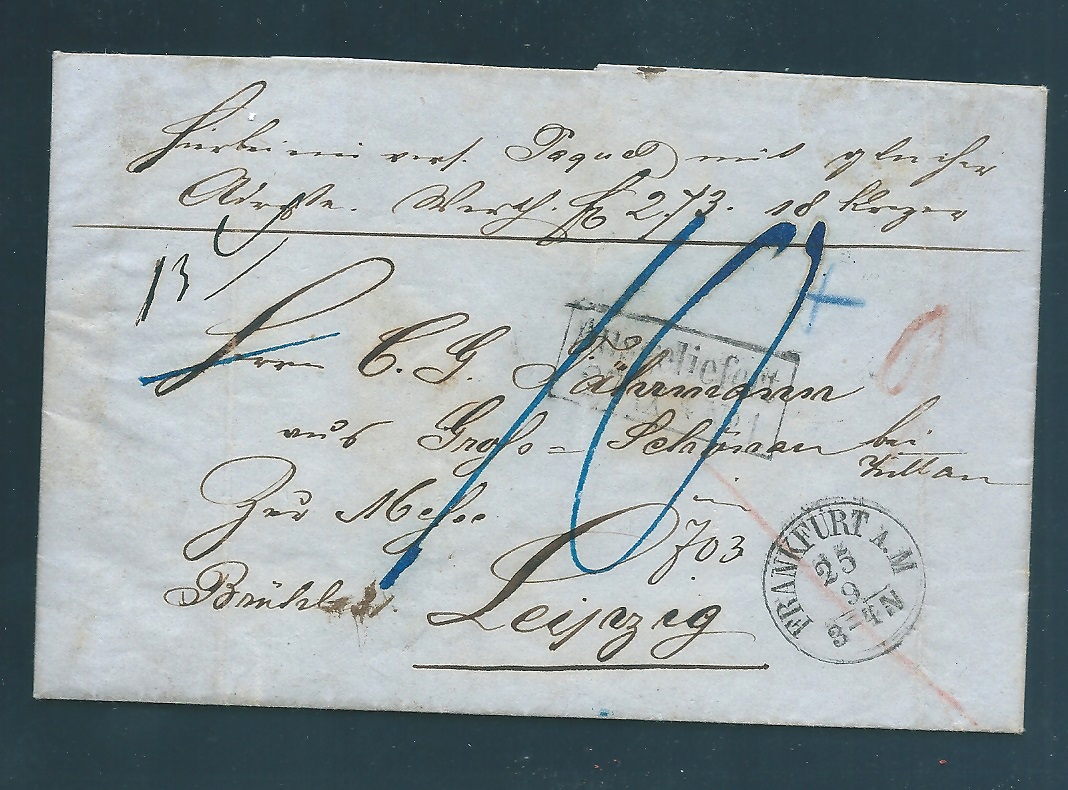 Hierbei ein vers. Paquet mit gleicher
Adresse. Werth. f 273. 18 Krezer
13
10
Herrn C. G. Währmann
aus Groß-Schönau bei
Zittau
Zur Messe in
703
Brühl
Leipzig
Ausgeliefert
FRANKFURT A. M
25
9
3-4 N